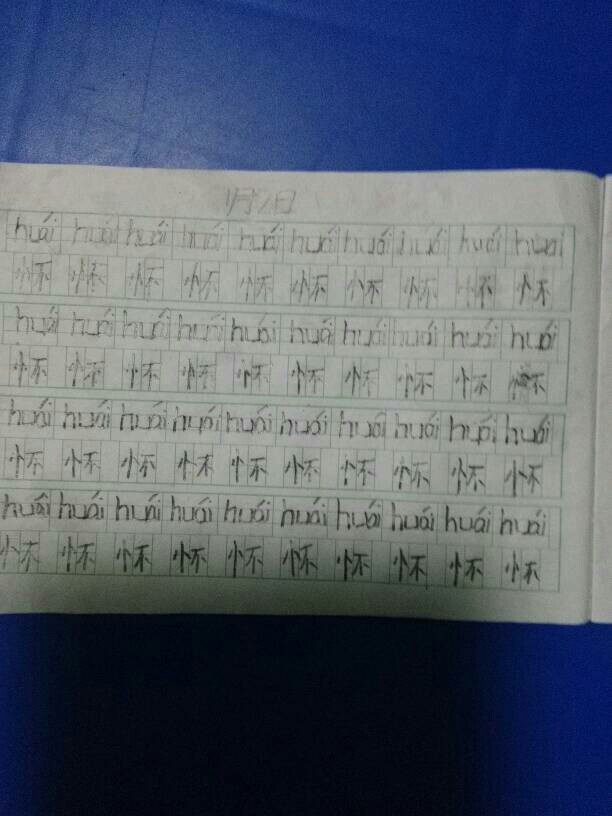 1月2日
huái huái huái huái huái huái huái huái huái huái
怀 怀 怀 怀 怀 怀 怀 怀 怀 怀
huái huái huái huái huái huái huái huái huái huái
怀 怀 怀 怀 怀 怀 怀 怀 怀 怀
huái huái huái huái huái huái huái huái huái huái
怀 怀 怀 怀 怀 怀 怀 怀 怀 怀
huái huái huái huái huái huái huái huái huái huái
怀 怀 怀 怀 怀 怀 怀 怀 怀 怀